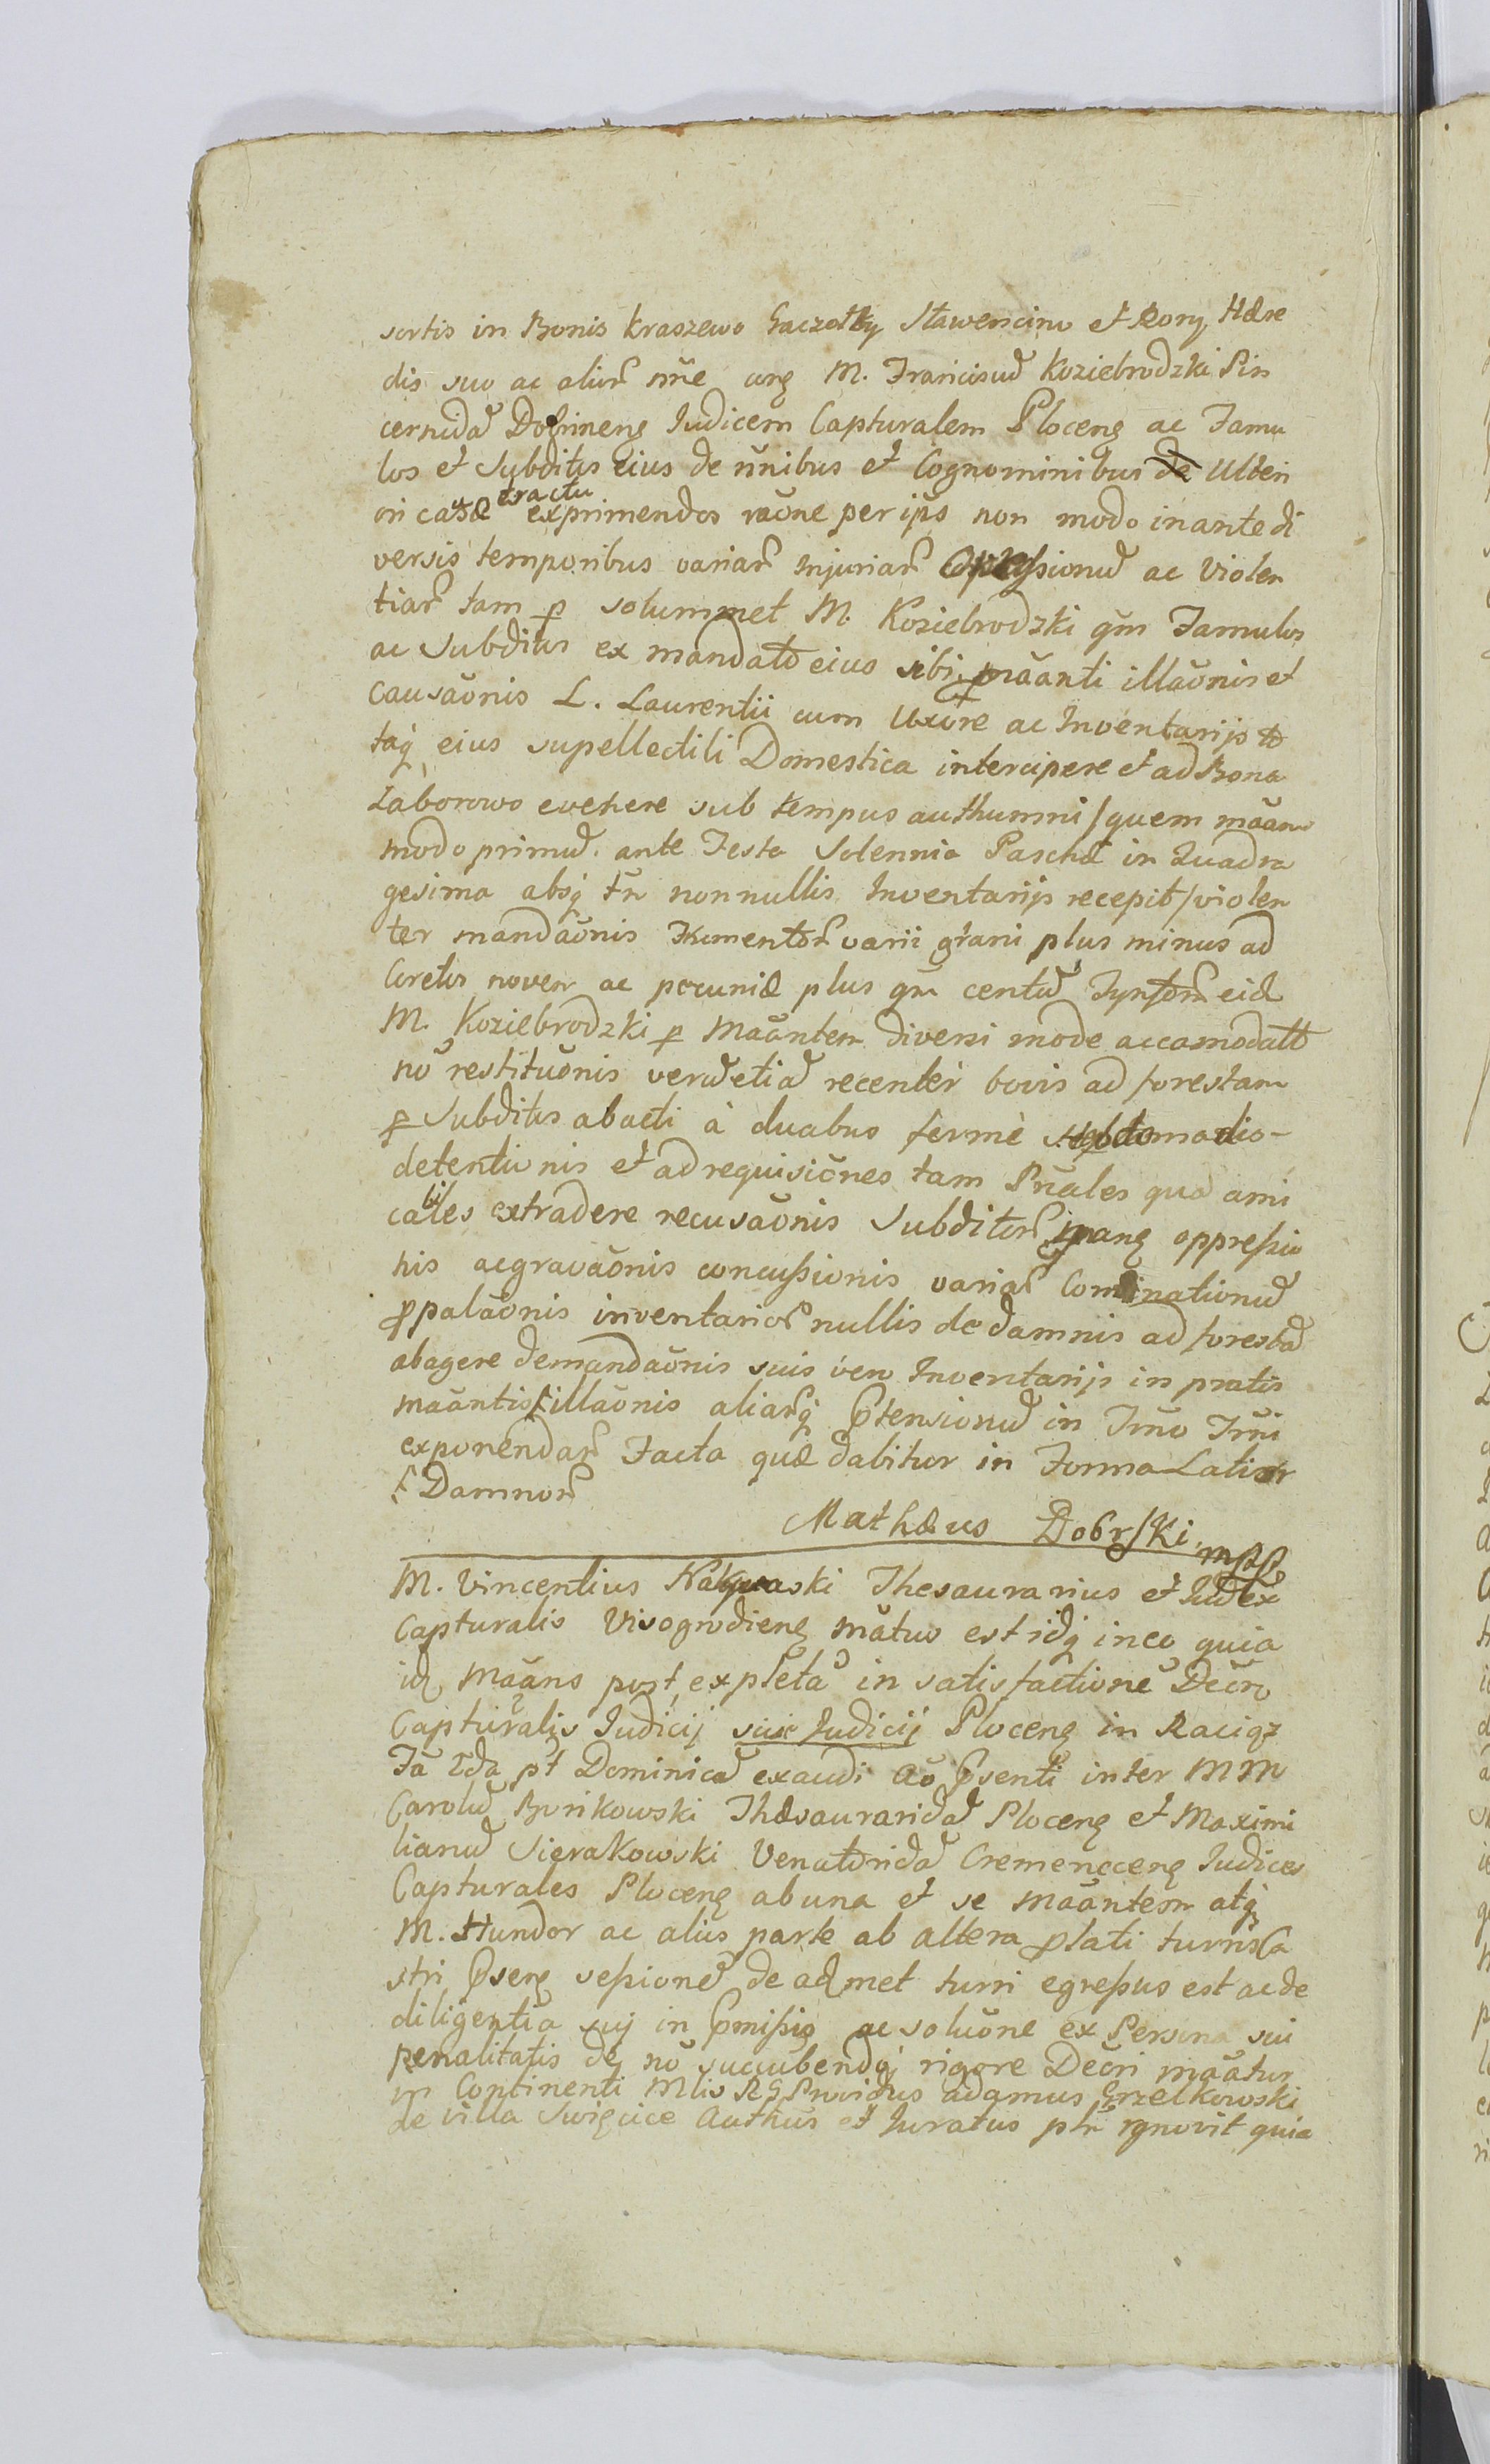 sortis in Bonis Kraszewo Gaczołky Sławencino et Rory Hære
dis suo ac alior nñe cong M. Franciscũ Koziebrodzki Pin
cernidã Dobrineng Iudicem Capturalem Ploceng ac Famu
los et Subditos eius de ñnibus et Cognominibus de Ulteri
ori causæ tractu exprimendos rãone per ip̃s non modo inante di
versis temporibus variar Injuriar Oppressionũ ac Violen
tiar tam p solummet M. Koziebrodzki qm̃ Famulos
ac Subditos ex mandato eius sibi mãanti illãonis et
causãonis L. Laurentii cum Uxore ac Inventarijs to
taq eius supellectili Domestica intercipere et ad Bona
Zaborowo evehere sub tempus authumni /quem mãans
modo primũ ante Festa Solennia Paschæ in Quadra
gesima absq tñ nonnullis Inventarijs recepit/ violen
ter mandãonis Frumentor varii grani plus minus ad
Coretos noven ac pecuniæ plus qm̃ centũ Tynfor eid
M. Koziebrodzki p Mãantem diversi mode accomodatt
nõ restitũonis verũ etiã recenter bovis ad forestam
p Subditos abacti à duabus fermè Hebdomadis
detentionis et ad requisiõnes tam Pñales qua ami
cabiles extradere recusãonis Subditor oppressio
nis aggravãonis concussionis variar Cominationũ
propalãonis inventarior nullis de damnis ad forestã
abagere demandãonis suis vero Inventarijs in pratis
mãantis illãonis aliarq Ptensionũ in Tr̃no Tr̃ni
exponendar Facta quæ dabitur in Forma Latior
Damnor
Mathæus Dobrski mpp
M. Vincentius Nakwaski Thesaurarius et Iudex
Capturalis Visogrodieng mãtus est idq in eo quia
id Mãans post expletã in satisfactionẽ Decri
Capturalis Iudicij suis Iudicij Ploceng in Raciąz
Fã 2da pt Dominicã exaudi Aõ Psenti inter MM
Carolũ Bonkowski Thæsauraridã Ploceng et Maximi
lianũ Sierakowski Venatoridã Cremeneceng Iudices
Capturales Ploceng ab una et se mãantem atq
M. Hundor ac alios parte ab altera plati turris Ca
stri Pseng sessionẽ de ad met turri egressus est ac de
diligentia sui in Pmissis ac solũone ex Persona sui
penalitatis de nõ succubendq rigore Decri mãatur
in Continenti Mlis RG Providus adamus Grzelkowski
de villa Swięcice Authus et Iuratus ptr rgnovit quia